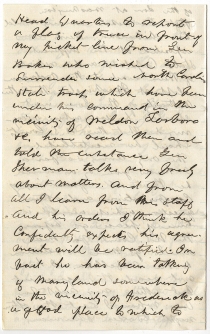 Head Quarters to report
a flag of Truce in front of
my picket line from Gen
Baker who wished to
Surrender some North Carolina
State troops which have been
under his command in the
vicinity of Weldon Tarboro
&c, have read the and
told the substance Gen
Sherman talks very freely
about matters. And from
all I learn from his staff
And his orders I think he
Confidently expects his agree-
ment will be ratified. In
fact he has been talking
of Maryland somewhere
in the vicinity of Frederick as
a good place to which to